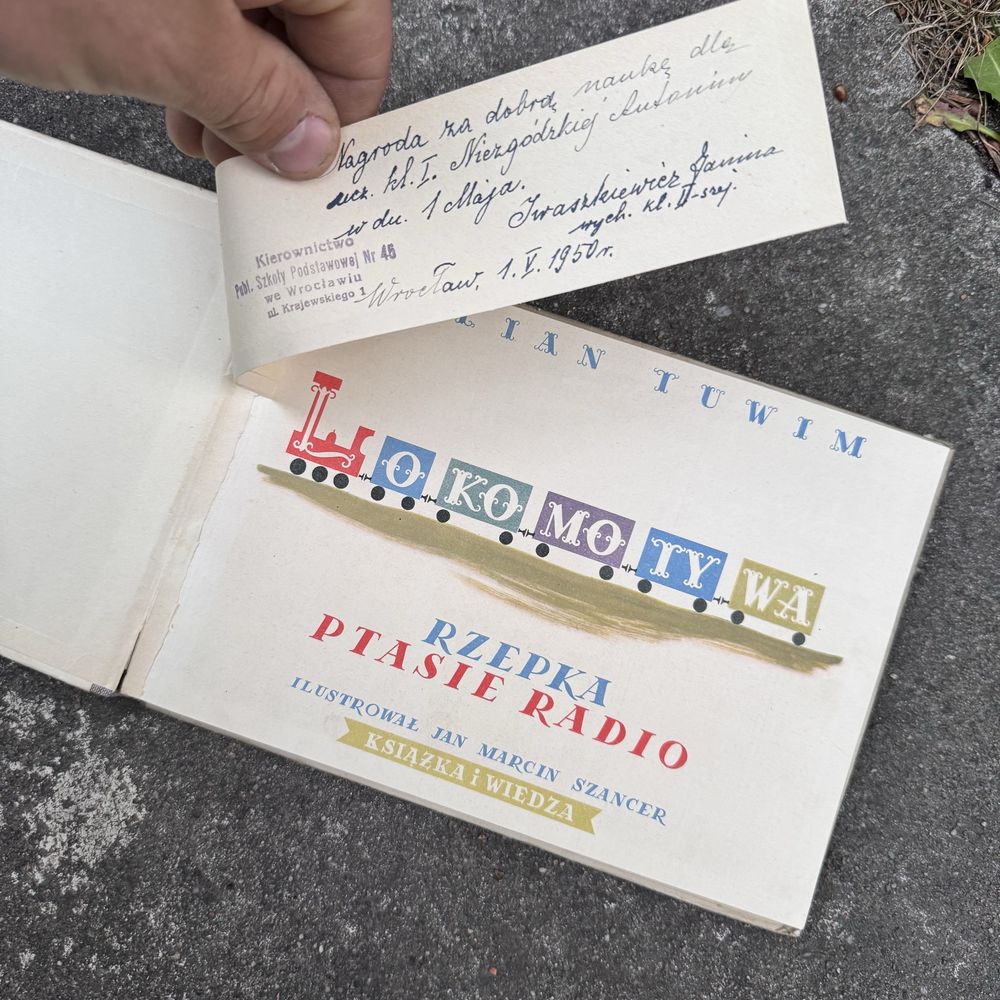 Nagroda za dobrą naukę dla
ucz. kl. I. Niezgódzkiej Antoniny
w dn. 1 Maja.
Iwaszkiewicz Janina
wych. kl. II-szej.
Kierownictwo
Publ. Szkoły Podstawowej Nr 45
we Wrocławiu
ul. Krajewskiego 1
Wrocław, 1.V.1950r.
LIAN TUWIM
LOKOMOTYWA
RZEPKA
PTASIE RADIO
ILUSTROWAŁ JAN MARCIN SZANCER
KSIĄŻKA i WIEDZA